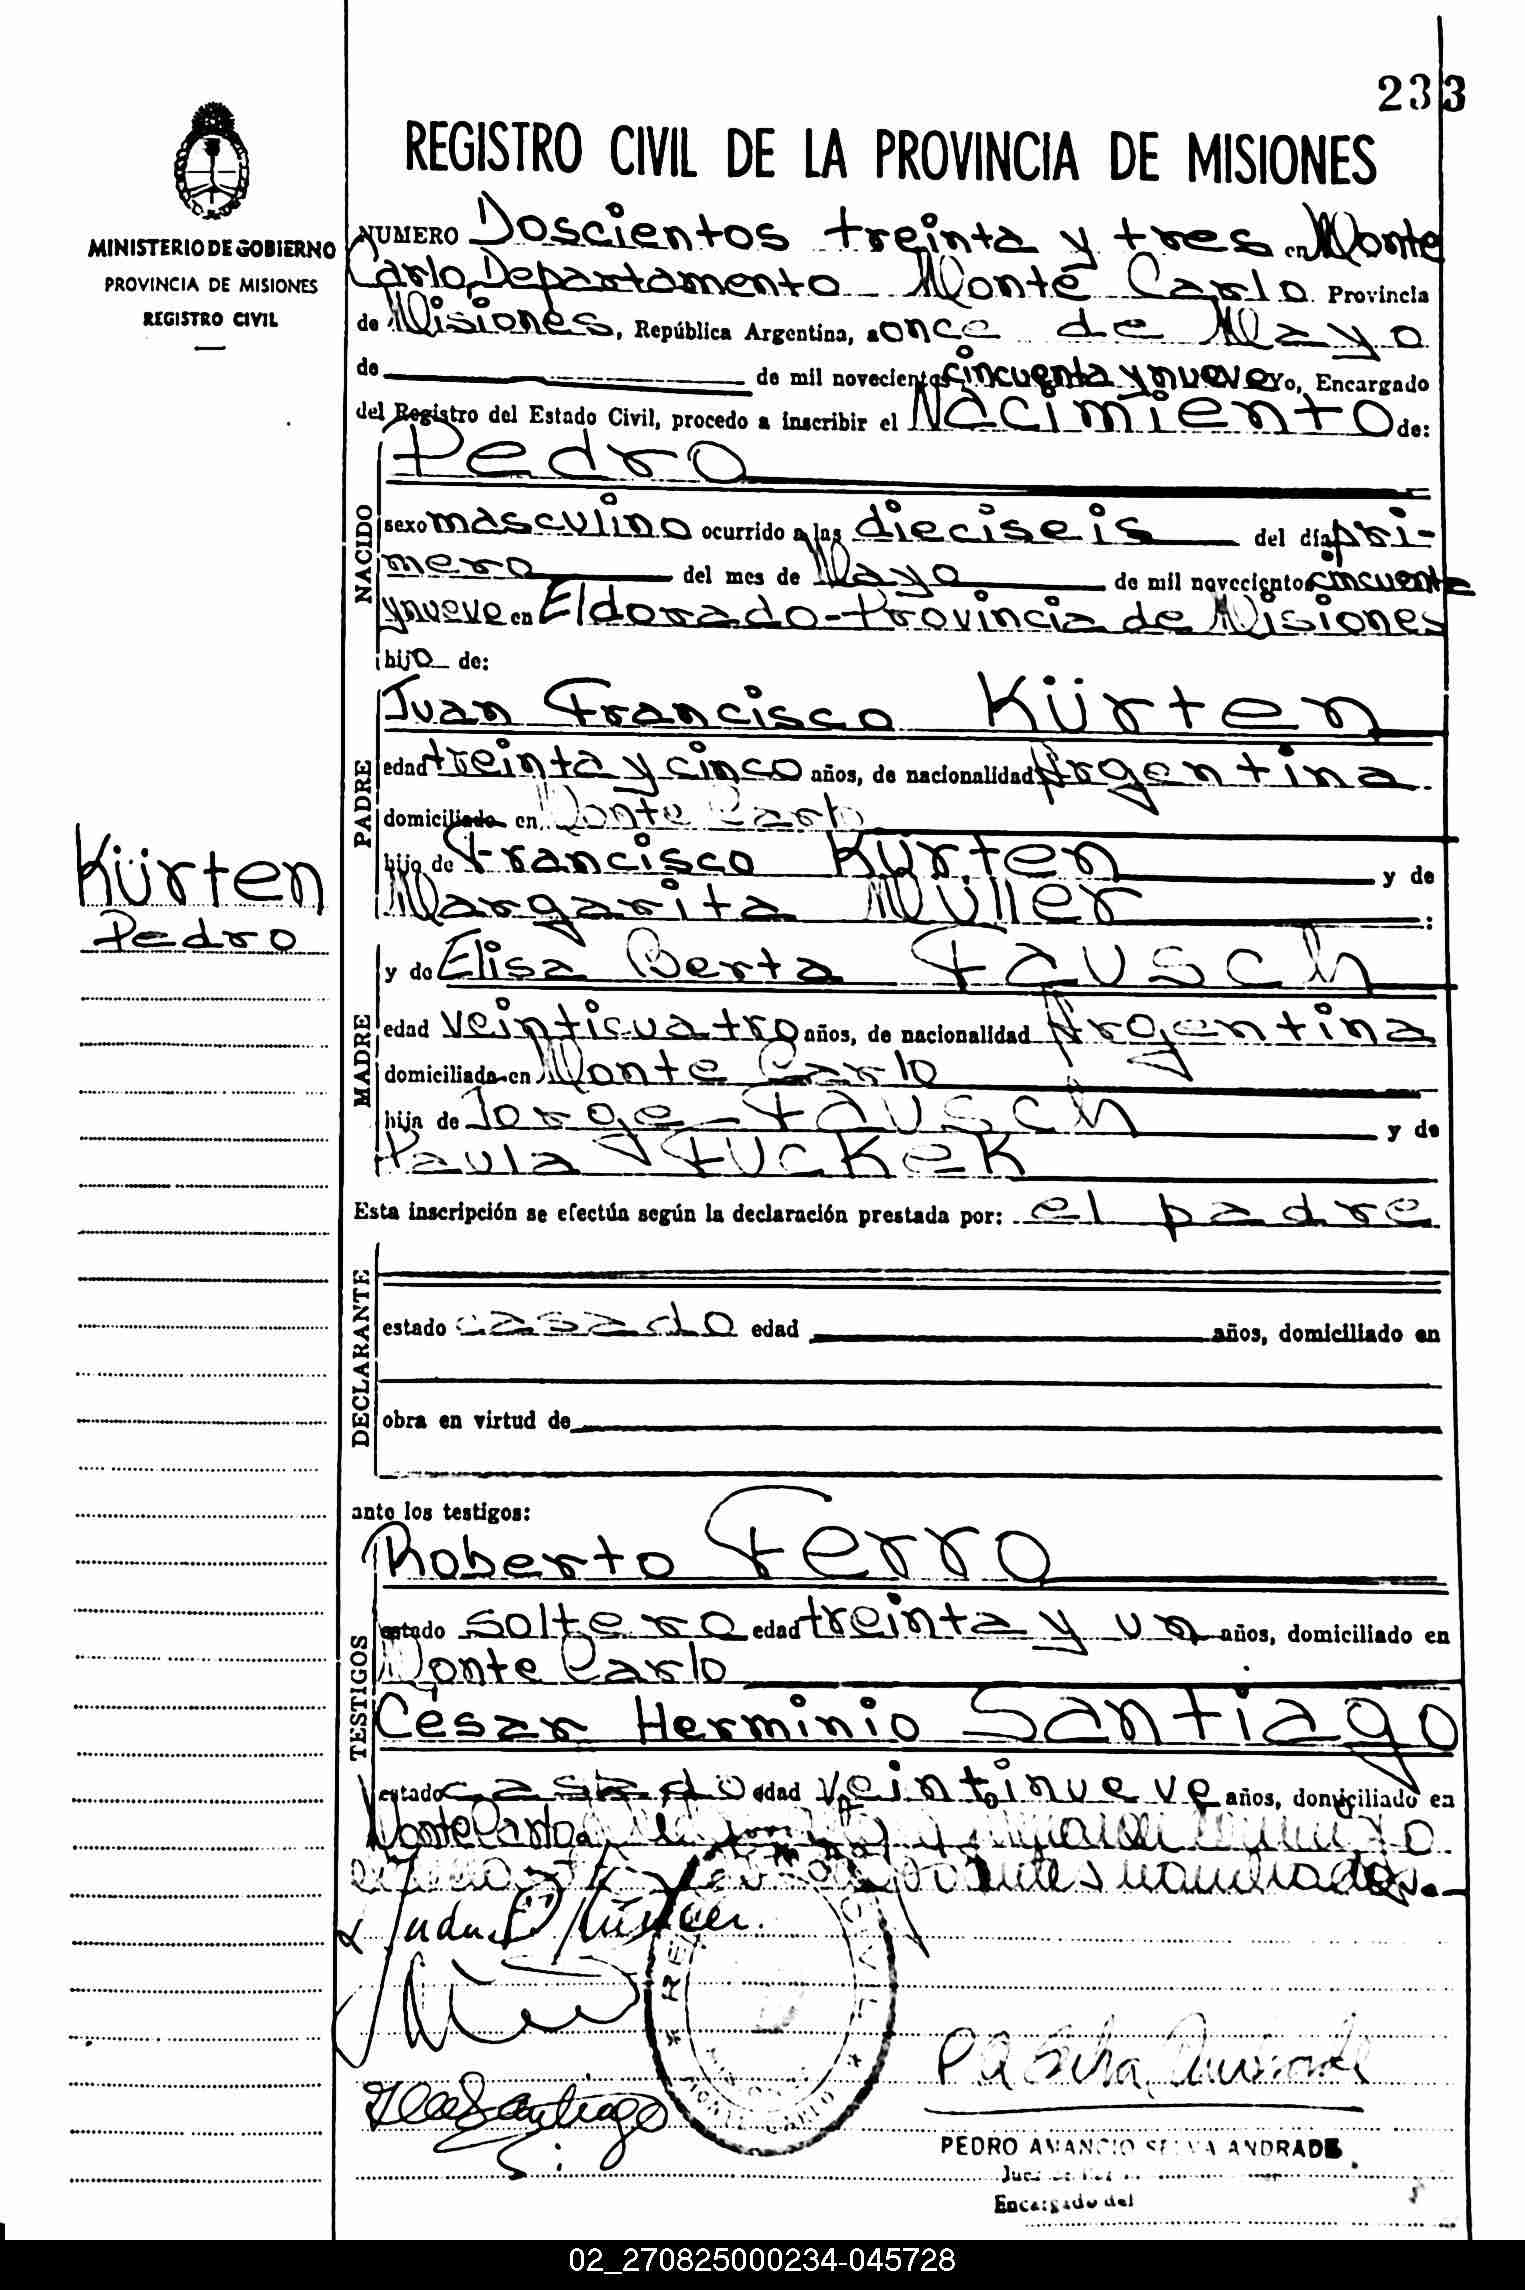 233
REGISTRO CIVIL DE LA PROVINCIA DE MISIONES
MINISTERIO DE GOBIERNO
PROVINCIA DE MISIONES
REGISTRO CIVIL
NUMERO Doscientos treinta y tres en Monte
Carlo, Departamento Monte Carlo Provincia
de Misiones, República Argentina, a once de Mayo
de de mil novecientos cincuenta y nueve Yo, Encargado
del Registro del Estado Civil, procedo a inscribir el Nacimiento de:
NACIDO
Pedro
sexo masculino ocurrido a las dieciseis del día pri-
mero del mes de Mayo de mil novecientos cincuenta
y nueve en Eldorado-Provincia de Misiones
hijo de:
PADRE
Juan Francisco Kürten
edad treinta y cinco años, de nacionalidad Argentina
domiciliado en Monte Carlo
hijo de Francisco Kürten y de
Margarita Müller :
Kürten
Pedro
MADRE
y de Elisa Berta Fausch
edad veinticuatro años, de nacionalidad Argentina
domiciliada en Monte Carlo
hija de Jorge Fausch y de
Paula Fucker
Esta inscripción se efectúa según la declaración prestada por: el padre
DECLARANTE
estado casado edad años, domiciliado en
obra en virtud de
ante los testigos:
TESTIGOS
Roberto Ferro
estado soltero edad treinta y un años, domiciliado en
Monte Carlo
César Herminio Santiago
estado casado edad veintinueve años, domiciliado en
Monte Carlo
nombrados.-
Santiago
MONTE CARLO
PEDRO AMANCIO SELVA ANDRADE
Encargado del
02_270825000234-045728